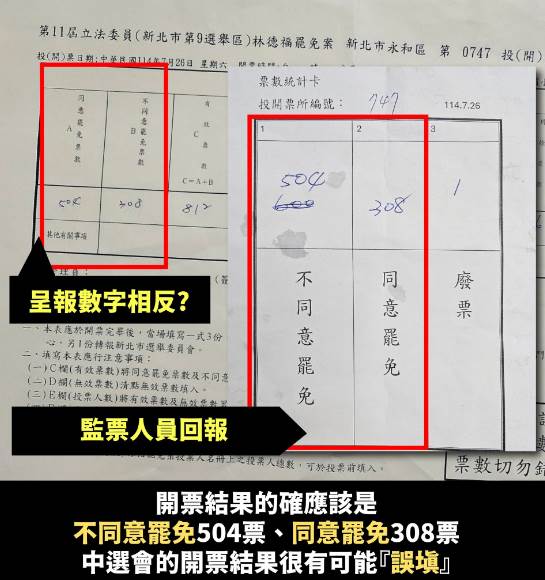 第11屆立法委員(新北市第9選舉區)林德福罷免案 新北市永和區 第 0747 投(開)
投(開)票日期:中華民國114年7月26日 星期六
同意罷免票數 A
不同意罷免票數 B
有效票數 C
C=A+B
504
308
812
其他有關事項
票數統計卡
投開票所編號: 747
114.7.26
1
2
3
504
308
1
不同意罷免
同意罷免
廢票
呈報數字相反?
一、本表應於開票完畢後,當場填寫一式3份
心,另1份轉報新北市選舉委員會。
二、填寫本表應行注意事項:
(一)C欄(有效票數)將同意罷免票數及不同意
(二)D欄(無效票數)清點無效票數填入。
(三)E欄(投票人數)將有效票數及無效票數累
監票人員回報
投票人名冊上之投票人總數,可於投票前填入。
票數切勿錯
開票結果的確應該是
不同意罷免504票、同意罷免308票
中選會的開票結果很有可能『誤填』